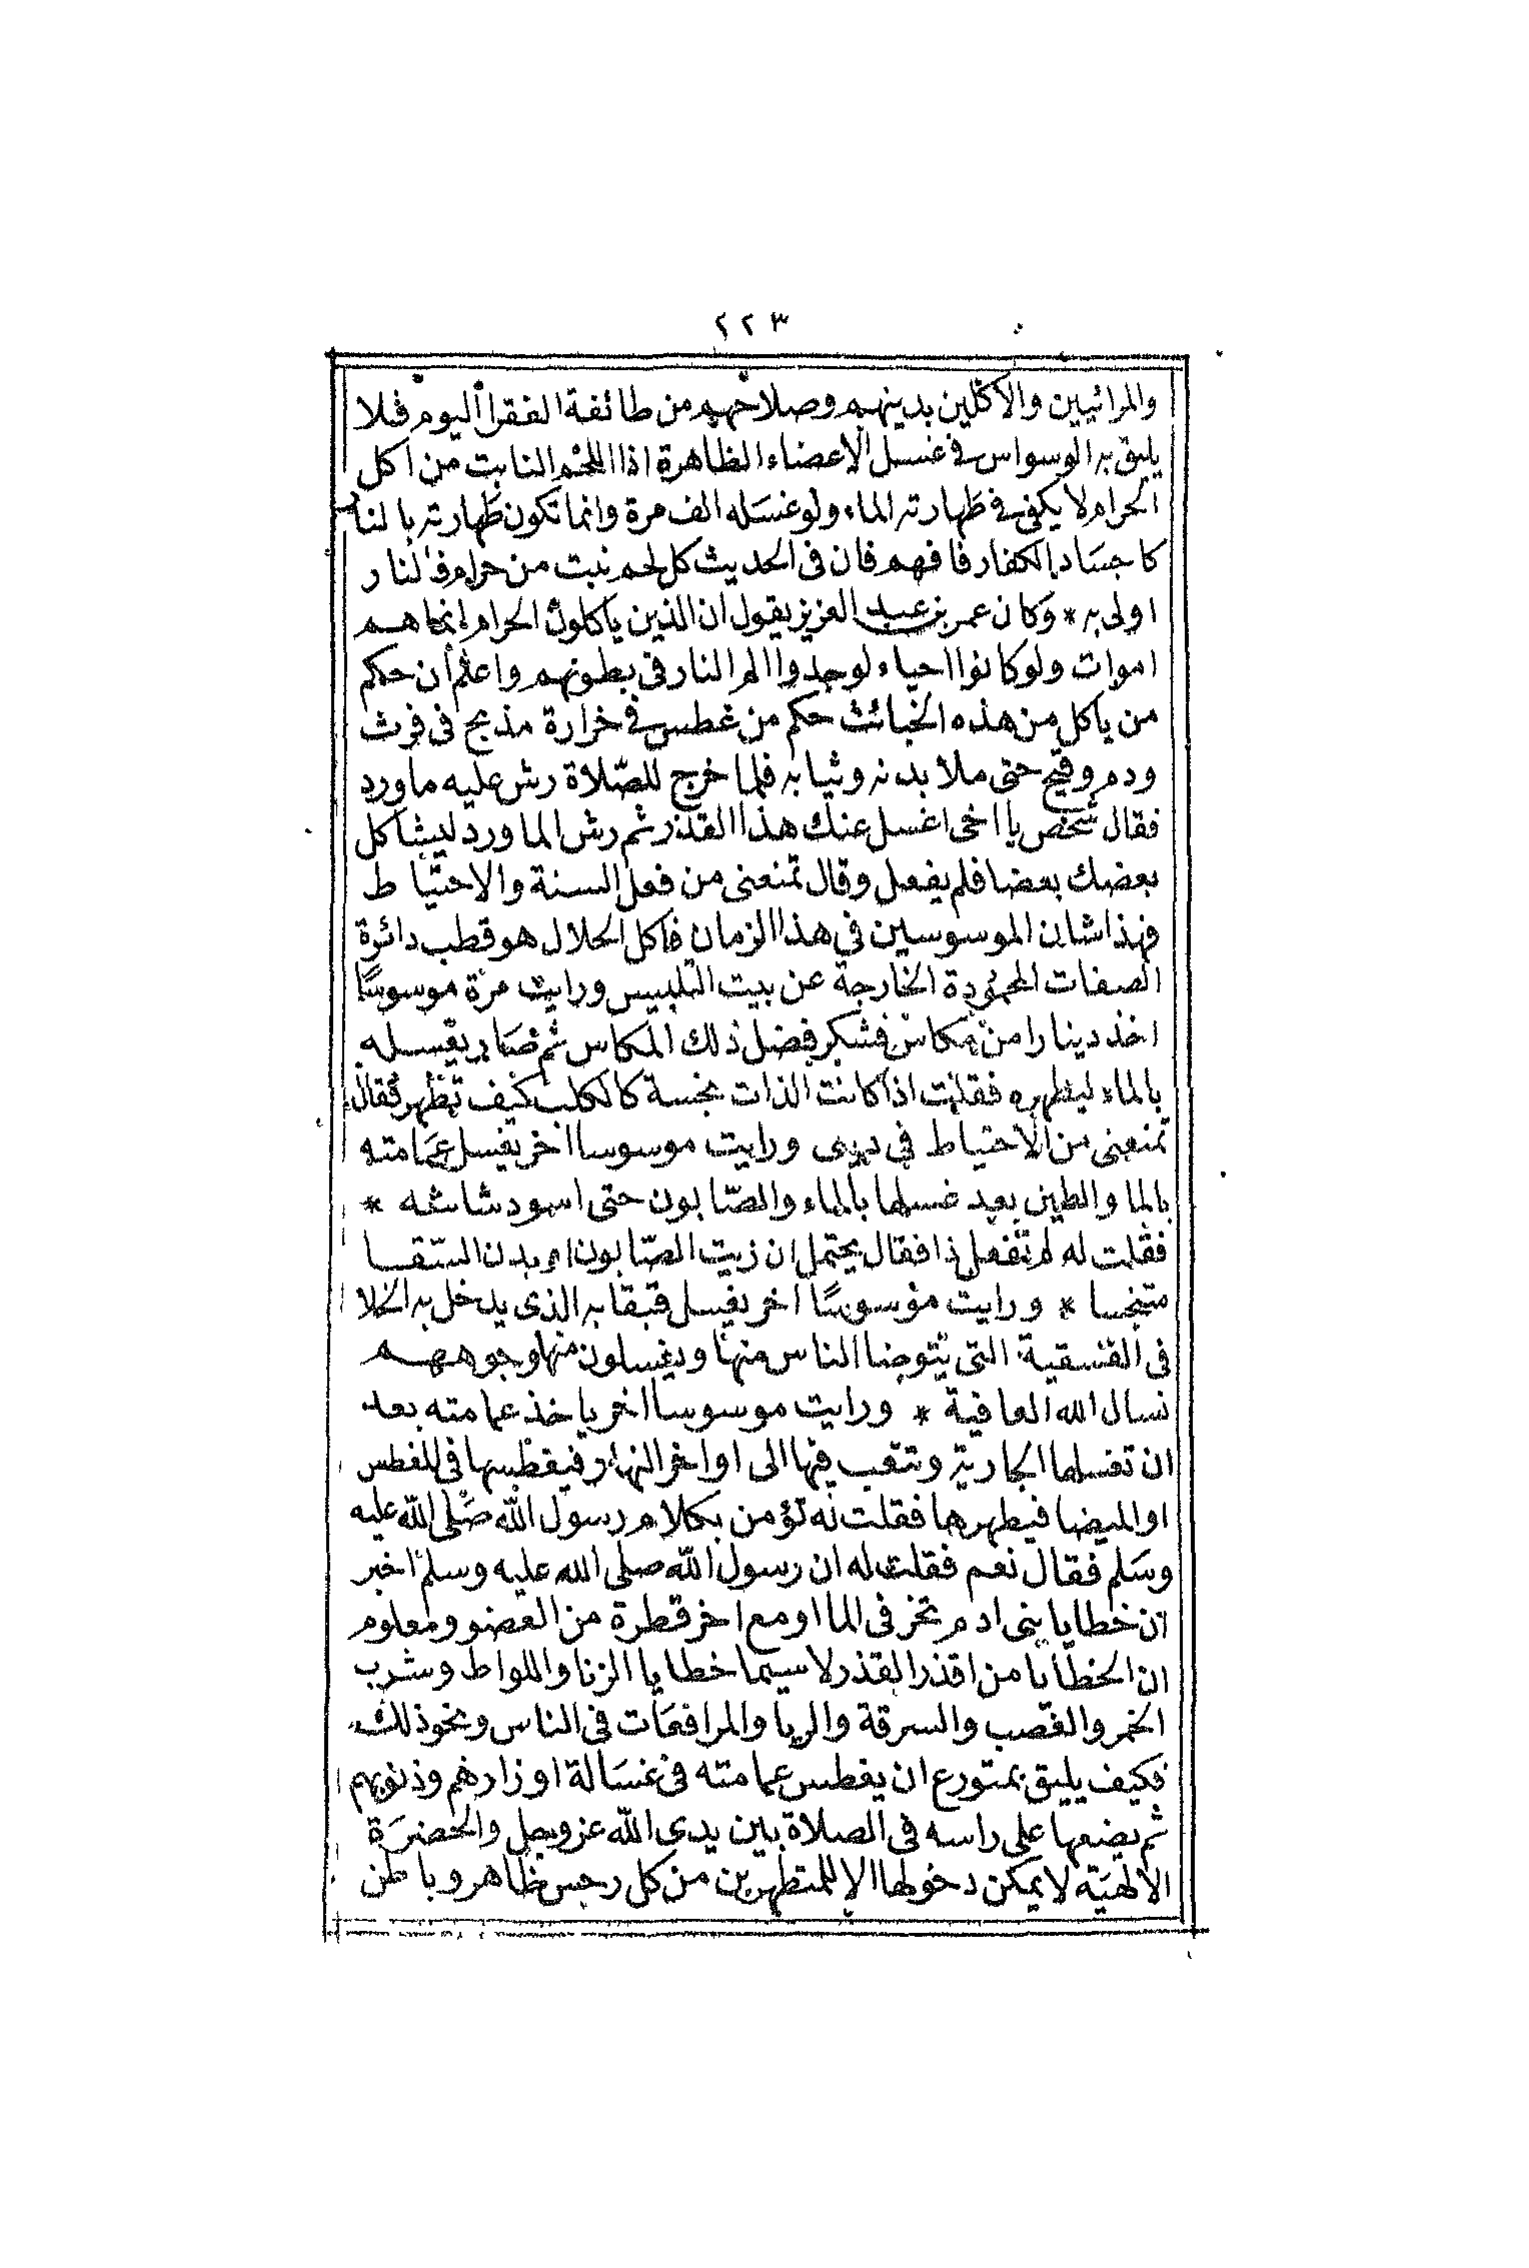 ٢٢٣
والمرائيين والآكلين بدينهم وصلاحهم من طائفة الفقرا اليوم فلا
يليق به الوسواس في غسل الاعضاء الظاهرة اذ اللحم النابت من اكل
الحرام لا يكفى في طهارته الماء ولو غسله الف مرة وانما تكون طهارته بالنار
كاجساد الكفار فافهم فان فى الحديث كل لحم نبت من حرام فالنار
اولى به * وكان عمر بن عبد العزيز يقول ان الذين ياكلون الحرام انما هم
اموات ولو كانوا احياء لوجدوا الم النار فى بطونهم واعلم ان حكم
من ياكل من هذه الخبائث حكم من غطس في خرارة مذبح فى فرث
ودم وقيح حتى ملا بدنه وثيابه فلما خرج للصّلاة رش عليه ماورد
فقال شخص يا اخى اغسل عنك هذا القذر ثم رش الماورد ليشاكل
بعضك بعضا فلم يفعل وقال تمنعنى من فعل السنة والاحتياط
فهذا شان الموسوسين في هذا الزمان فاكل الحلال هو قطب دائرة
الصفات المحمودة الخارجة عن بيت التلبيس ورايت مرة موسوسًا
اخذ دينارا من مكاس فشكر فضل ذلك المكاس ثم صار يغسله
بالماء ليطهره فقلت اذا كانت الذات نجسة كالكلب كيف تطهر فقال
تمنعنى من الاحتياط في دينى ورايت موسوسا اخر يغسل عمامته
بالما والطين بعد غسلها بالماء والصّابون حتى اسود شاشه *
فقلت له لم تفعل ذا فقال يحتمل ان زيت الصّابون او بدن السّقا
متنجسا * ورايت موسوسًا اخر يغسل قبقابه الذى يدخل به الخلا
فى الفسقية التى يتوضا الناس منها ويغسلون منها وجوههم
نسال الله العافية * ورايت موسوسا اخر ياخذ عمامته بعد
ان تغسلها الجارية وتتعب فيها الى اواخر النهار فيغطسها فى المغطس
او الميضا فيطهرها فقلت له تؤمن بكلام رسول الله صلى الله عليه
وسَلم فقال نعم فقلت له ان رسول الله صلى الله عليه وسلم اخبر
ان خطايا بنى ادم تخر فى الما او مع اخر قطرة من العضو ومعلوم
ان الخطايا من اقذر القذر لا سيما خطايا الزنا واللواط وشرب
الخمر والغصب والسرقة والربا والمرافعات فى الناس ونحو ذلك
فكيف يليق بمتورع ان يغطس عمامته فى غسَالة اوزارهم وذنوبهم
ثم يضعها على راسه فى الصلاة بين يدى الله عز وجل والحضرَة
الالهيَة لا يمكن دخولها الا للمتطهرين من كل رجس ظاهر وباطن